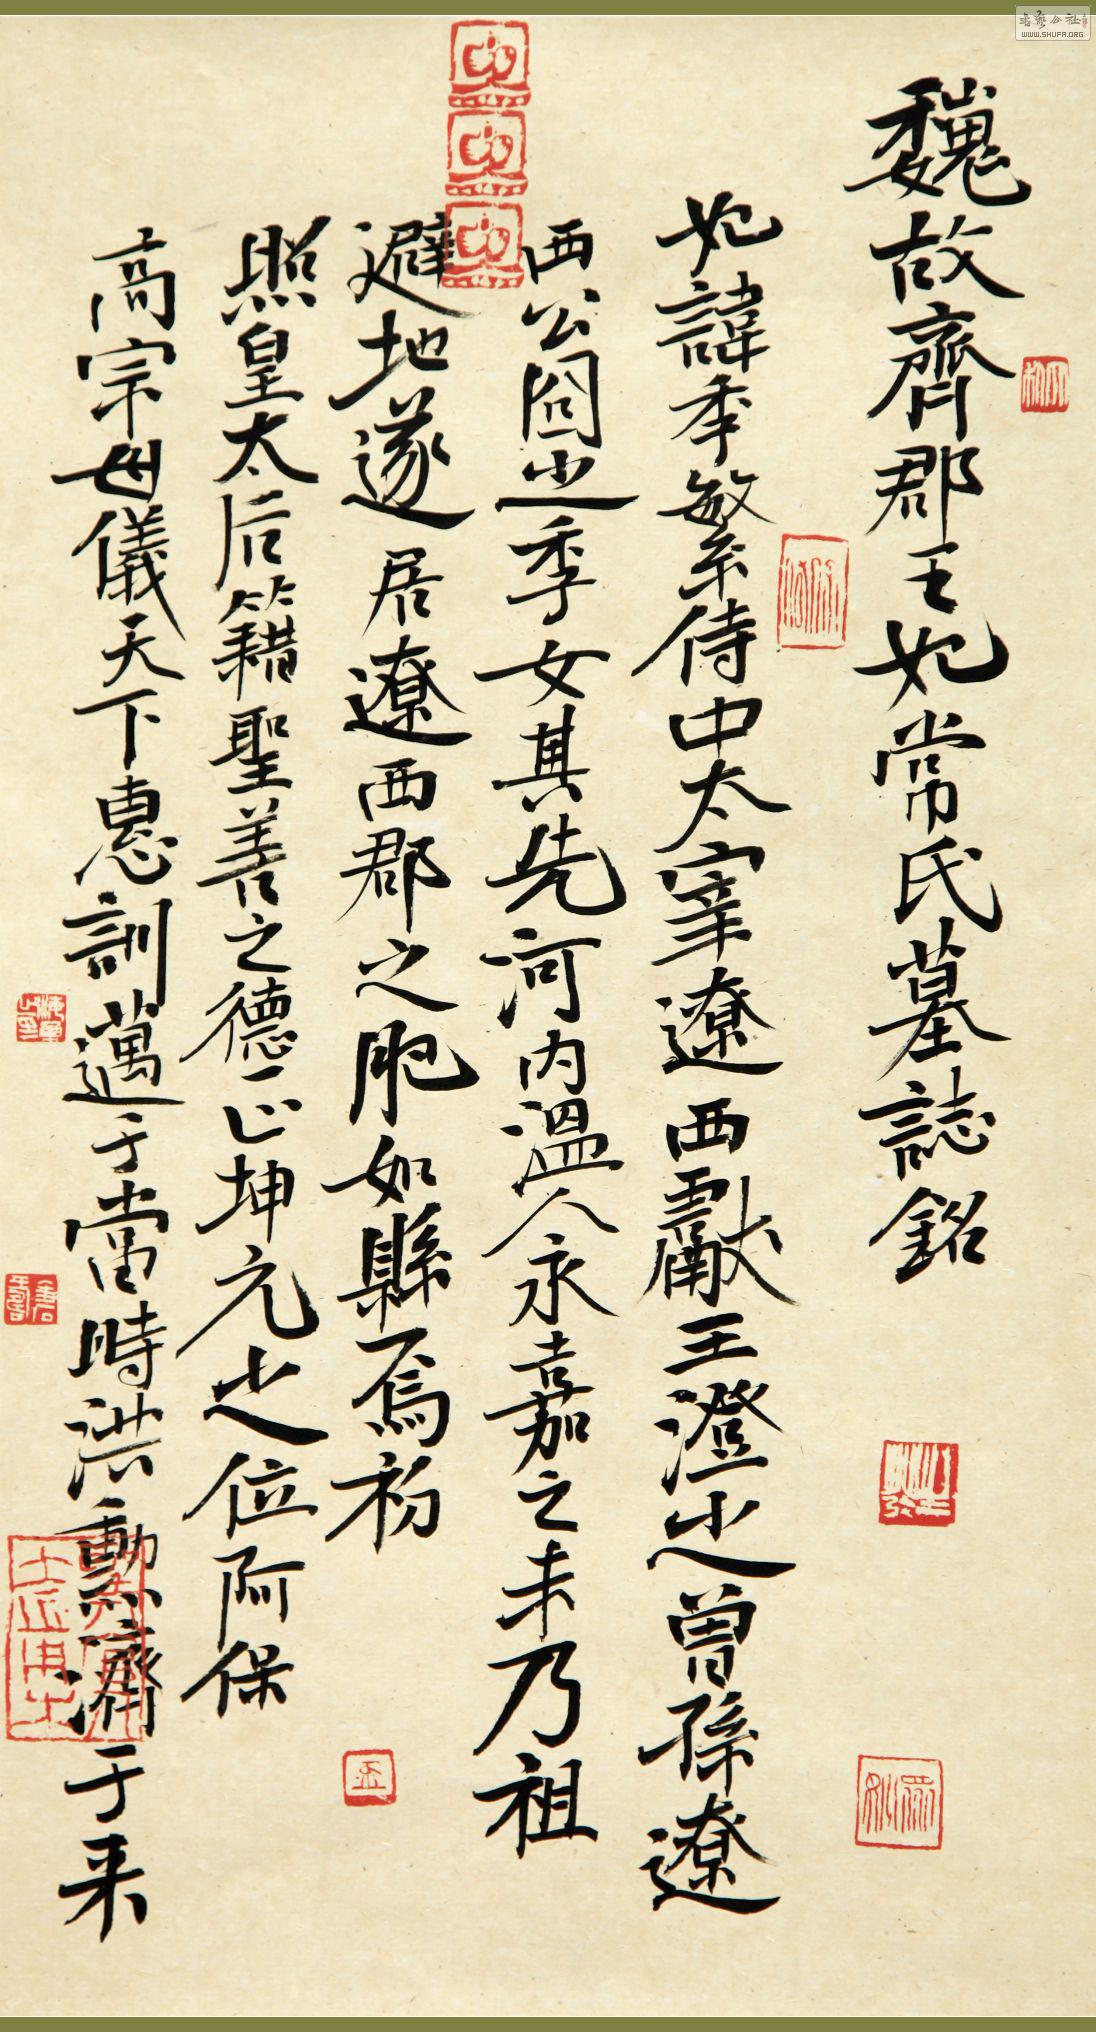 魏故齊郡王妃常氏墓誌銘
妃諱季繁侍中太宰遼西獻王澄之曾孫遼
西公囧之季女其先河內溫人永嘉之末乃祖
避地遂居遼西郡之肥如縣焉初
照皇太后籍聖善之德正坤元之位阿保
高宗母儀天下惠訓邁于當時洪勳濟于來
WWW.SHUFA.ORG